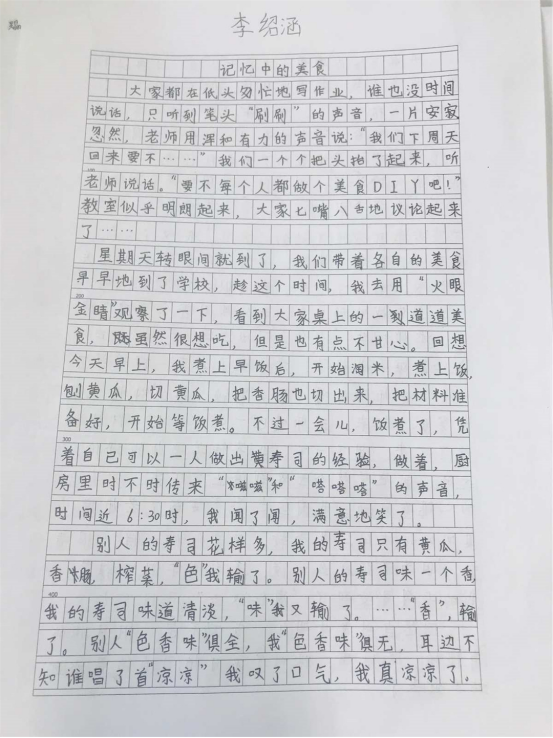 李绍涵
记忆中的美食
大家都在低头匆忙地写作业，谁也没时间
说话，只听到笔头“刷刷”的声音，一片安寂
忽然，老师用浑和有力的声音说：“我们下周天
回来要不……”我们一个个把头抬了起来，听
老师说话。“要不每个人都做个美食DIY吧！”
教室似乎明朗起来，大家七嘴八舌地议论起来
了……
星期天转眼间就到了，我们带着各自的美食
早早地到了学校，趁这个时间，我去用“火眼
金睛”观察了一下，看到大家桌上的一道道美
食，虽然很想吃，但是也有点不甘心。回想
今天早上，我煮上早饭后，开始淘米，煮上饭，
刨黄瓜，切黄瓜，把香肠也切出来，把材料准
备好，开始等饭煮。不过一会儿，饭煮了，凭
300
着自己可以一人做出寿司的经验，做着，厨
房里时不时传来“嗞嗞”和“嗒嗒嗒”的声音，
时间近6:30时，我闻了闻，满意地笑了。
别人的寿司花样多，我的寿司只有黄瓜，
香肠 榨菜，“色”我输了。别人的寿司味一个香，
400
我的寿司味道清淡，“味”我又输了。……“香”，输
了。别人“色香味”俱全，我“色香味”俱无，耳边不
知谁唱了首“凉凉”我叹了口气，我真凉凉了。